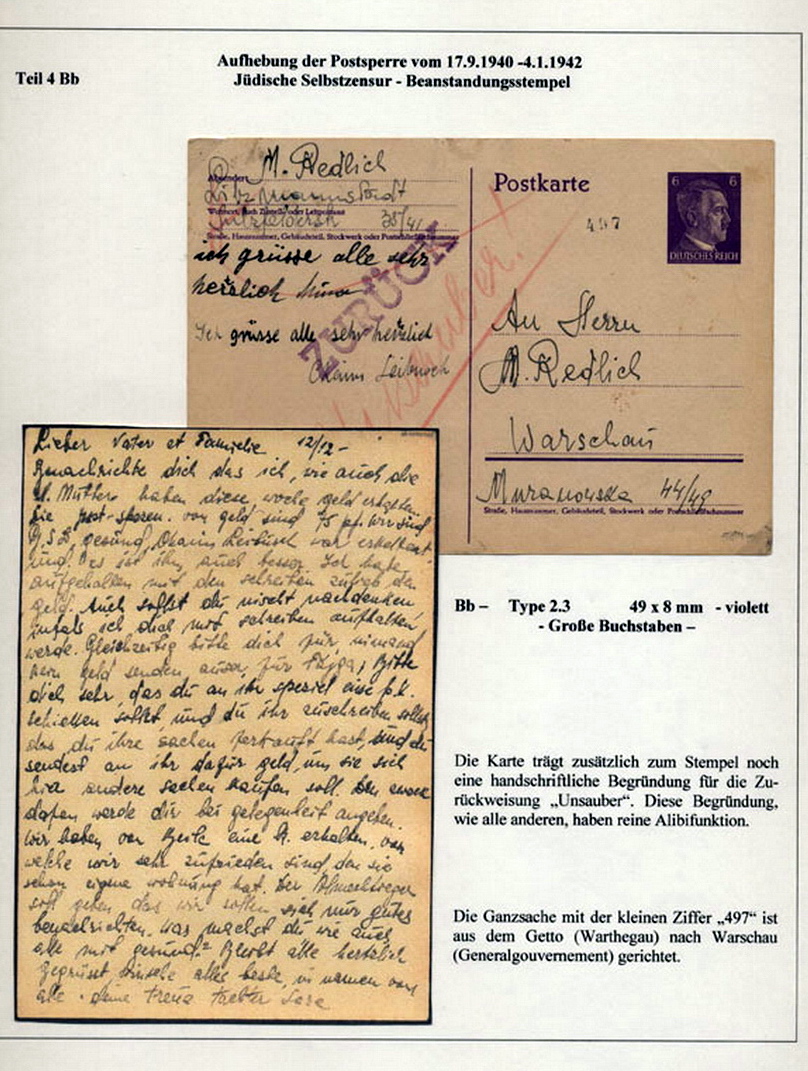 Aufhebung der Postsperre vom 17.9.1940 -4.1.1942
Teil 4 Bb
Jüdische Selbstzensur - Beanstandungsstempel
Absender: M. Redlich
Litzmannstadt
Wohnort, auch Zustell- oder Leitpostamt
35/41
Straße, Hausnummer, Gebäudeteil, Stockwerk oder Postschließfachnummer
ich grüsse alle sehr
herzlich
Ich grüsse alle sehr herzlich
Chaim
ZURÜCK
Unsauber.
Postkarte
6 6
DEUTSCHES REICH
497
An Herrn
M. Redlich
Warschau
Muranowska 44/49
Straße, Hausnummer, Gebäudeteil, Stockwerk oder Postschließfachnummer
Lieber Vater et Familie 12/12 -
Benachrichte dich das ich, wie auch die
l. Mutter haben diese woche geld erhalten.
von geld sind 75 pf. wir sind
gesund, Chaim war erkeltet
und es ist ihm auch besser. Ich habe
aufgehalten mit den schreiben
geld. Auch sollst du nischt nachdenken
ich dich mit schreiben aufhalten
werde. Gleichzeitig bitte dich für niemand
kein geld senden auser für Fajga, Bitte
dich sehr das du an ihr speziel eine p.k.
schicken sollst und du ihr zuschreiben sollst
das du ihre sachen verkauft hast, und du
sendest an ihr dafür geld, um sie sich
andere sachen kaufen soll. Den
werde dir bei gelegenheit angeben.
Wir haben von eine K. erhalten, von
welche wir sehr zufrieden sind, den sie
schon eigene wohnung hat. Der
soll geben das wir sollen sich nur gutes
benachrichten. Was machst du wie auch
alle mit gesund? Bleibt alle herzlich
gegrüsst alles beste, in namen von
alle. deine treue tochter Sara
Bb – Type 2.3 49 x 8 mm - violett
- Große Buchstaben –
Die Karte trägt zusätzlich zum Stempel noch
eine handschriftliche Begründung für die Zu-
rückweisung „Unsauber“. Diese Begründung,
wie alle anderen, haben reine Alibifunktion.
Die Ganzsache mit der kleinen Ziffer „497“ ist
aus dem Getto (Warthegau) nach Warschau
(Generalgouvernement) gerichtet.